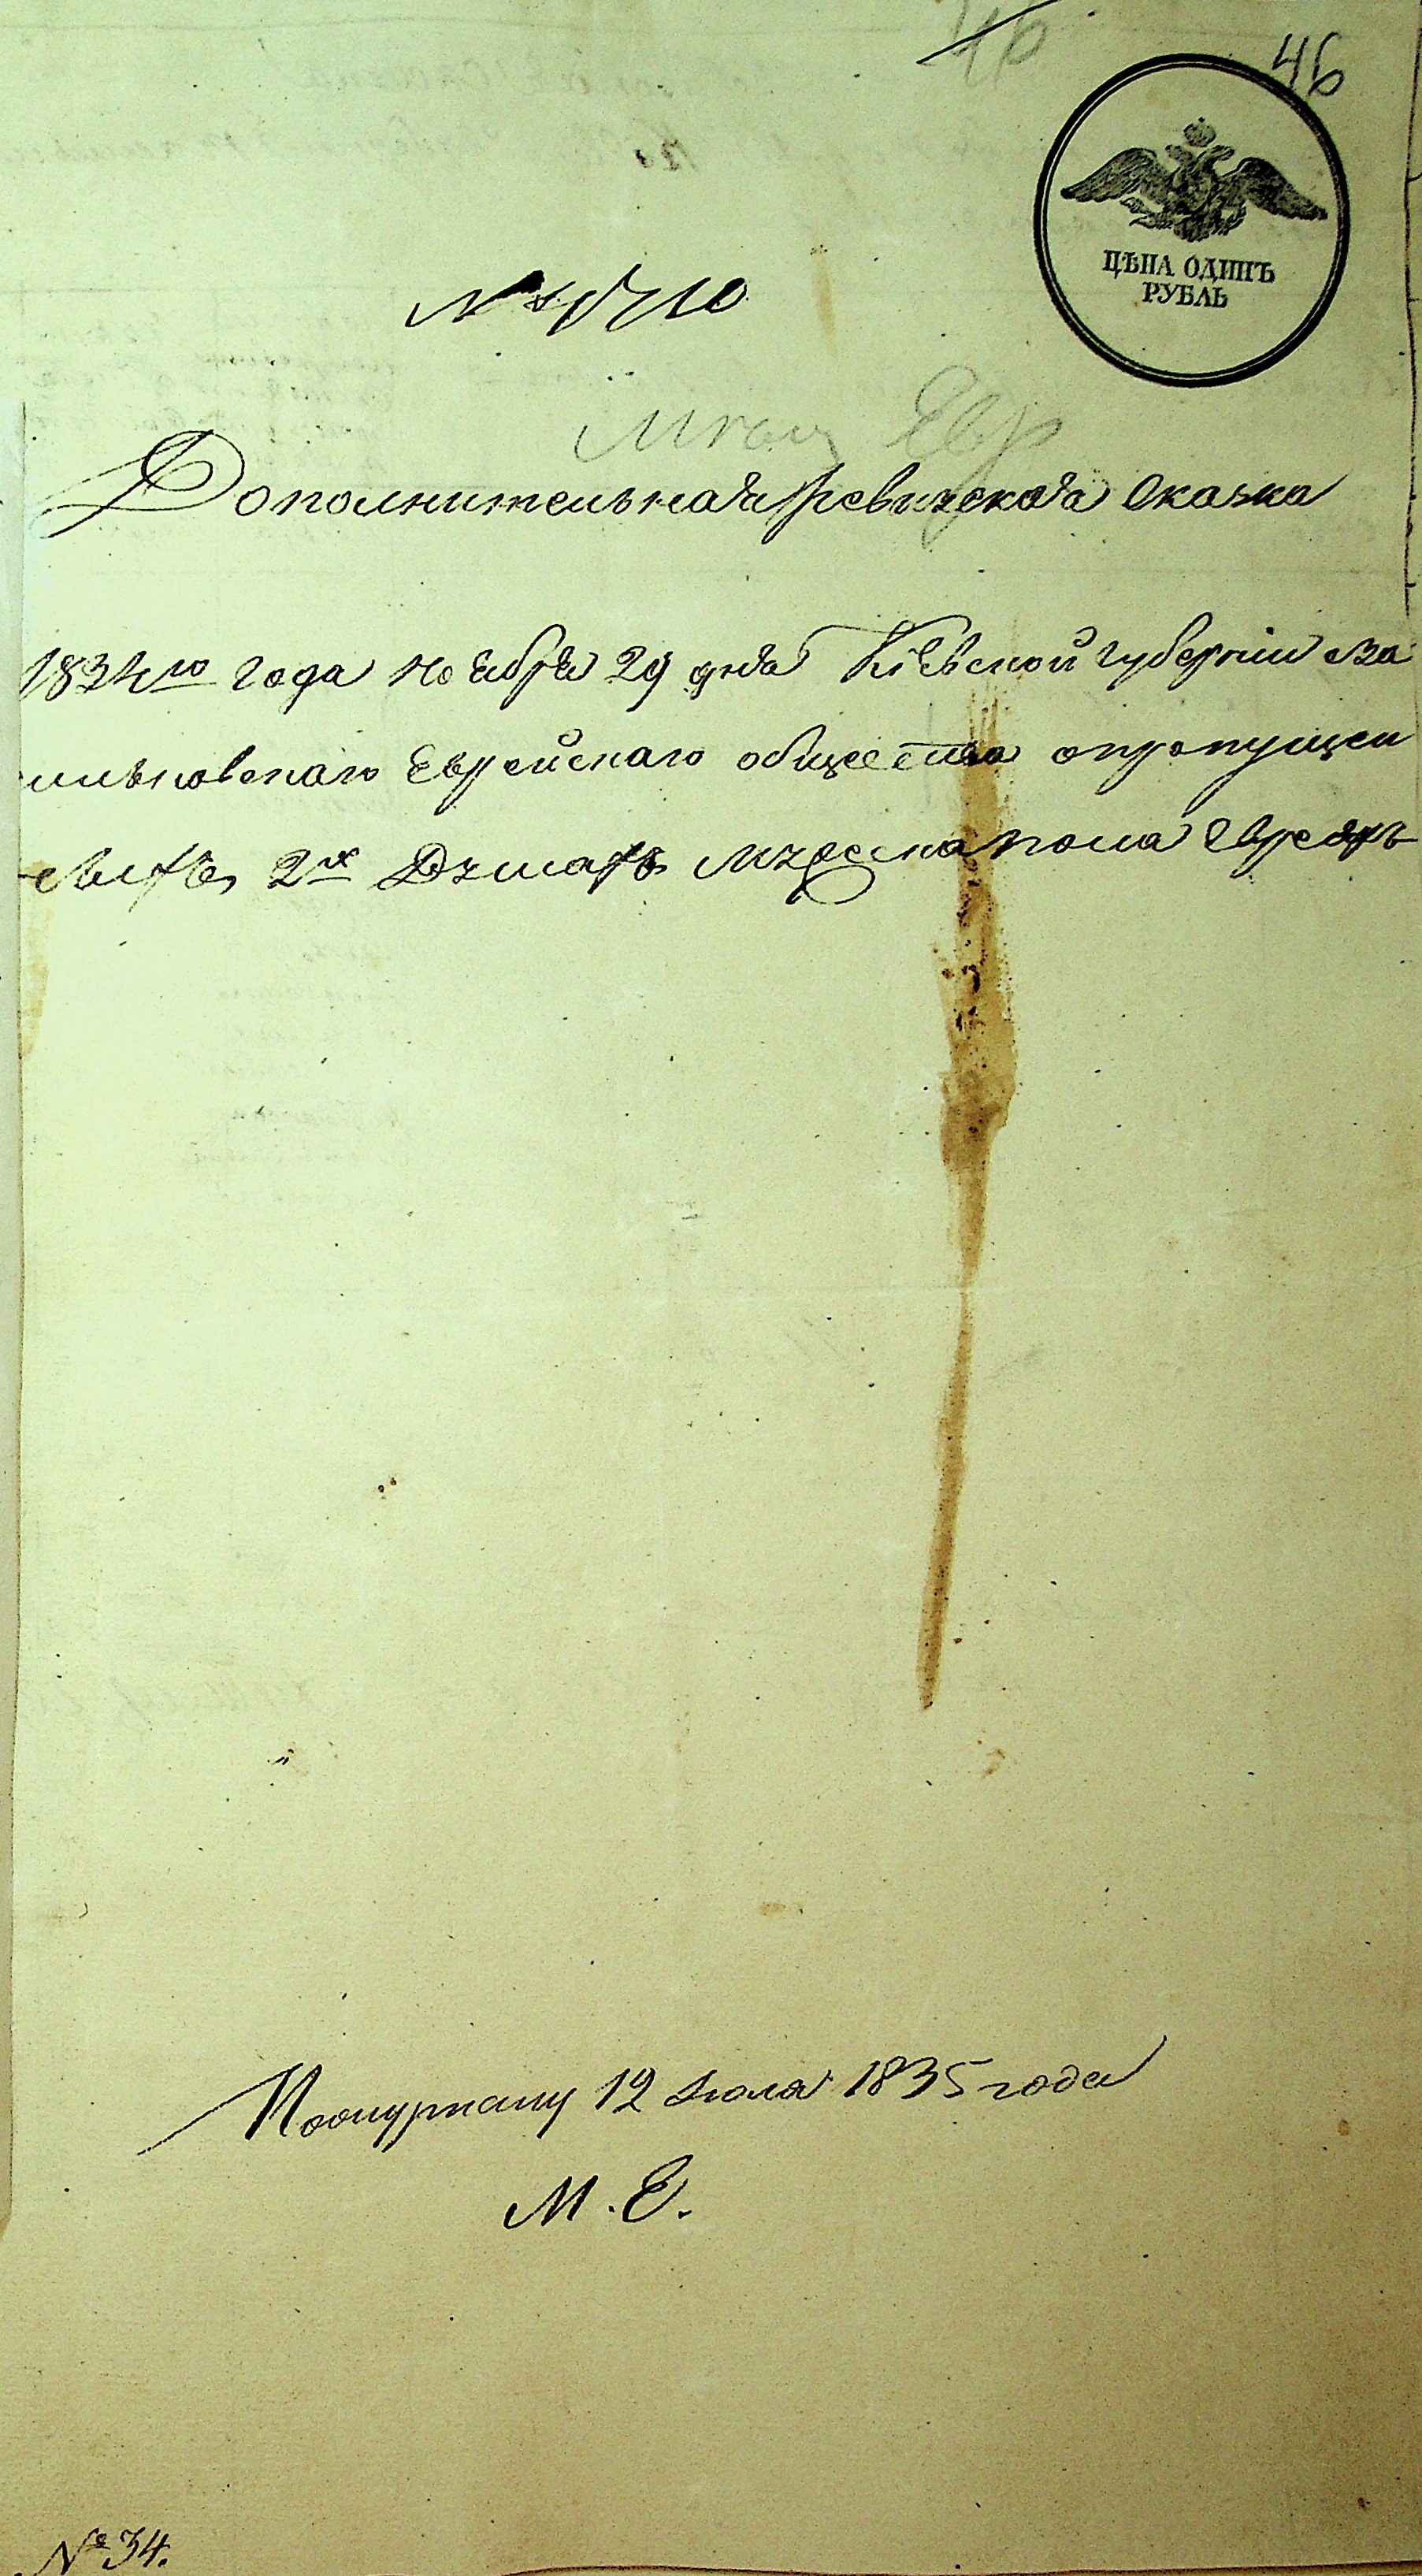 46
46
ЦѢНА ОДИНЪ
РУБЛЬ
Мѣщ Евр
Дополнительная ревизская Сказка
1834го года ноября 29 дня Кіевской губерніи Ва
сильковскаго Еврейскаго общества опропущен
ныхъ 2х душахъ мужеска пола Евреяхъ
Поступила 12 Июля 1835 года
М. Е.
№ 34.